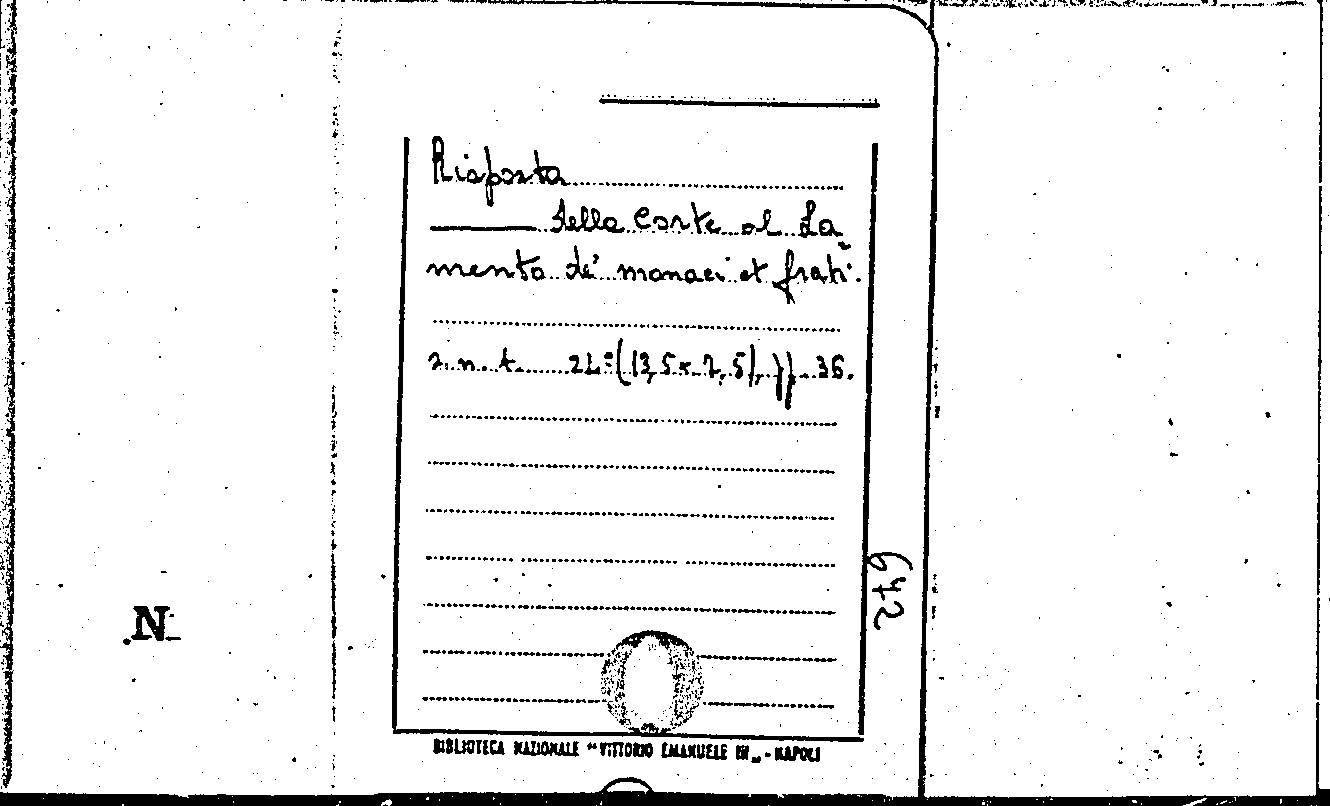 Risposta
della Corte al La-
mento de' monaci et frati.
s.n.t. 24° (13,5 x 7,5), pp. 36.
642
N
BIBLIOTECA NAZIONALE "VITTORIO EMANUELE III" - NAPOLI